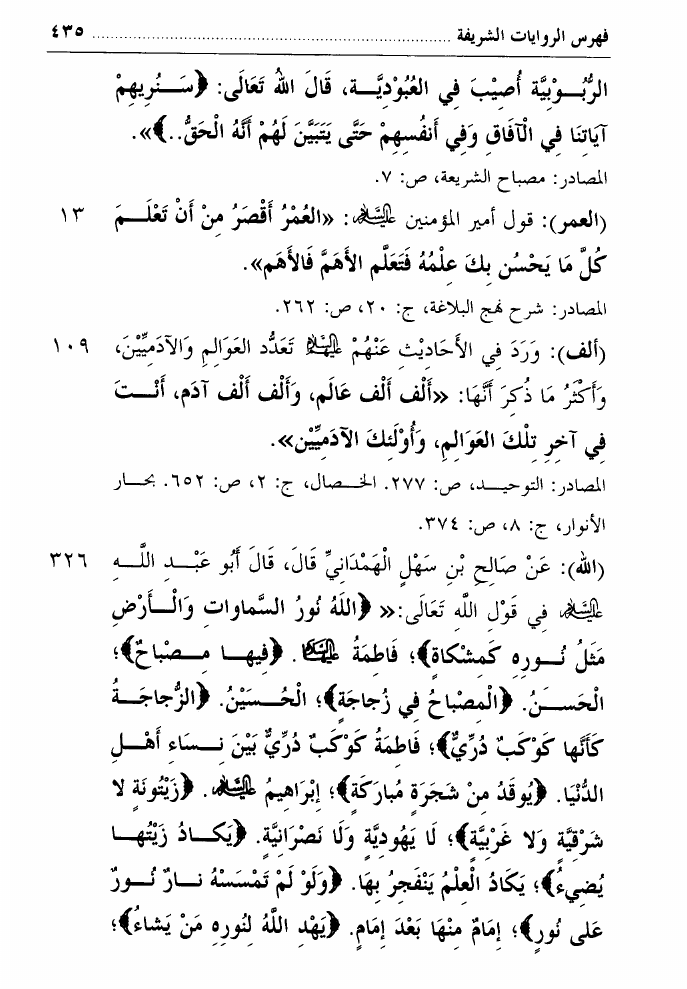 فهرس الروايات الشريفة ................................................ ٤٣٥
الرُّبُوْبِيَّة أُصِيْبَ فِي العُبُوْدِيَّة، قَالَ اللهُ تَعَالَى: ﴿سَنُرِيهِمْ
آيَاتِنَا فِي الْآفَاقِ وَفِي أَنفُسِهِمْ حَتَّى يَتَبَيَّنَ لَهُمْ أَنَّهُ الْحَقُّ..﴾».
المصادر: مصباح الشريعة، ص: ٧.
(العمر): قول أمير المؤمنين عليه السلام: «العُمْرُ أَقْصَرُ مِنْ أَنْ تَعْلَمَ ١٣
كُلَّ مَا يَحْسُن بِكَ عِلْمُهُ فَتَعَلَّم الأَهَمَّ فَالأَهَم».
المصادر: شرح نهج البلاغة، ج: ٢٠، ص: ٢٦٢.
(ألف): وَرَدَ فِي الأَحَادِيْثِ عَنْهُمْ عليهم السلام تَعَدُّد العَوَالِمِ وَالآدَمِيِّيْنَ، ١٠٩
وَأَكْثَرُ مَا ذُكِرَ أَنَّهَا: «أَلْف أَلْف عَالَم، وَأَلْف أَلْف آدَم، أَنْتَ
فِي آخِرِ تِلْكَ العَوَالِمِ، وَأُوْلَئِكَ الآدَمِيِّيْن».
المصادر: التوحيد، ص: ٢٧٧. الخصال، ج: ٢، ص: ٦٥٢. بحار
الأنوار، ج: ٨، ص: ٣٧٤.
(الله): عَنْ صَالِحِ بْنِ سَهْلٍ الْهَمْدَانِيِّ قَالَ، قَالَ أَبُو عَبْدِ اللَّهِ ٣٢٦
عليه السلام فِي قَوْلِ اللَّهِ تَعَالَى:« ﴿اللَهُ نُورُ السَّماوات وَالْأَرْضِ
مَثَلُ نُورِهِ كَمِشْكاةٍ﴾؛ فَاطِمَةُ عليها السلام. ﴿فِيها مِصْباحٌ﴾؛
الْحَسَنُ. ﴿الْمِصْباحُ فِي زُجاجَةٍ﴾؛ الْحُسَيْنُ. ﴿الزُّجاجَةُ
كَأَنَّها كَوْكَبٌ دُرِّيٌّ﴾؛ فَاطِمَةُ كَوْكَبٌ دُرِّيٌّ بَيْنَ نِسَاءِ أَهْلِ
الدُّنْيَا. ﴿يُوقَدُ مِنْ شَجَرَةٍ مُبارَكَةٍ﴾؛ إِبْرَاهِيمُ عليه السلام. ﴿زَيْتُونَةٍ لا
شَرْقِيَّةٍ وَلا غَرْبِيَّةٍ﴾؛ لَا يَهُودِيَّةٍ وَلَا نَصْرَانِيَّةٍ. ﴿يَكادُ زَيْتُها
يُضِيءُ﴾؛ يَكَادُ الْعِلْمُ يَنْفَجِرُ بِهَا. ﴿وَلَوْ لَمْ تَمْسَسْهُ نارٌ نُورٌ
عَلى نُورٍ﴾؛ إِمَامٌ مِنْهَا بَعْدَ إِمَامٍ. ﴿يَهْدِ اللَّهُ لِنُورِهِ مَنْ يَشاءُ﴾؛